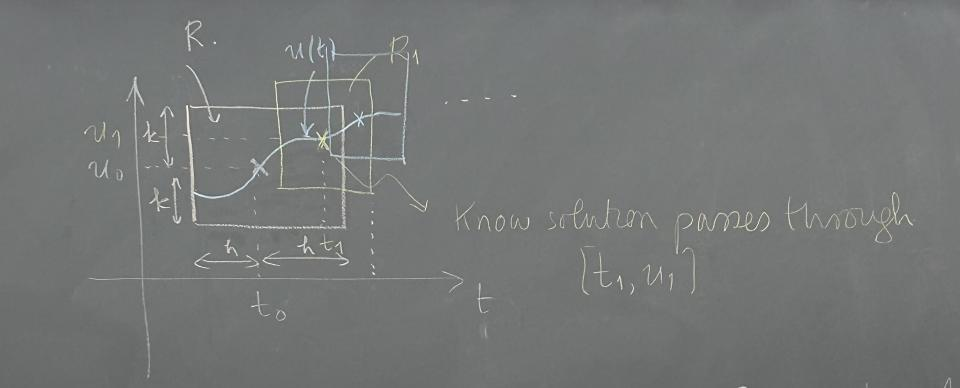 R.
u(t)
R₁
u₁
k
u₀
k
h
h
t₁
t₀
t
.....
Know solution passes through
[t₁, u₁]